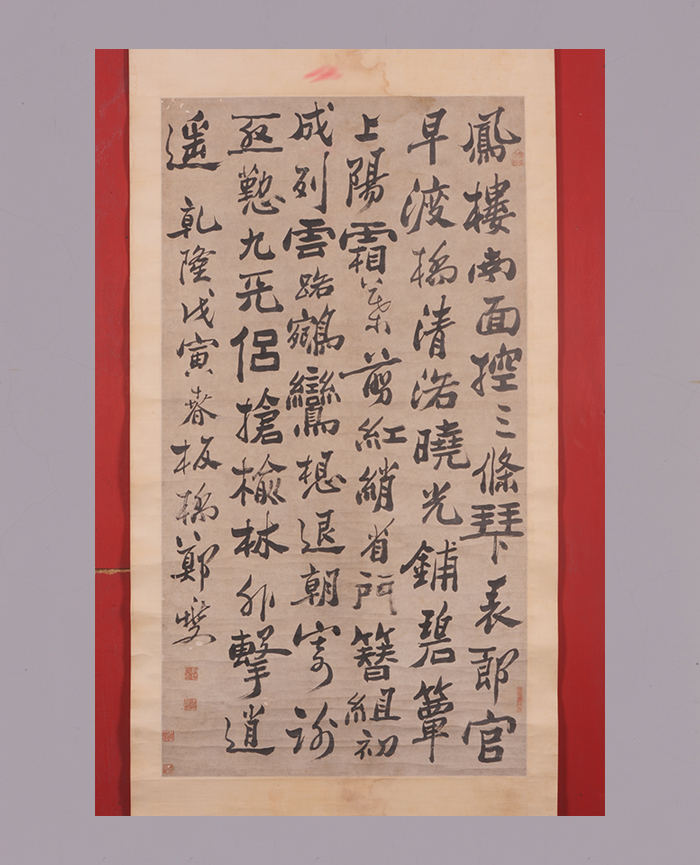 鳳樓南面控三條拜表郎官
早渡橋清洛曉光鋪碧簟
上陽霜葉剪紅綃省門簪組初
成列雲路鵷鸞想退朝寄謝
慇懃九天侶搶榆林外擊逍
遙 乾隆戊寅春板橋鄭燮